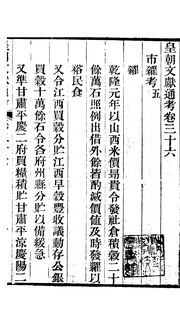 皇朝文獻通考卷三十六
市糴考五
糴
乾隆元年以山西米價昂貴令發社倉積穀二十
餘萬石照例出借外餘皆酌減價值及時發糶以
裕民食
又令江西買穀分貯江西早穀豐收議動存公銀
買穀十萬餘石令各府州縣分貯以備緩急
又準甘肅平慶二府買糧積貯甘肅平涼慶陽二